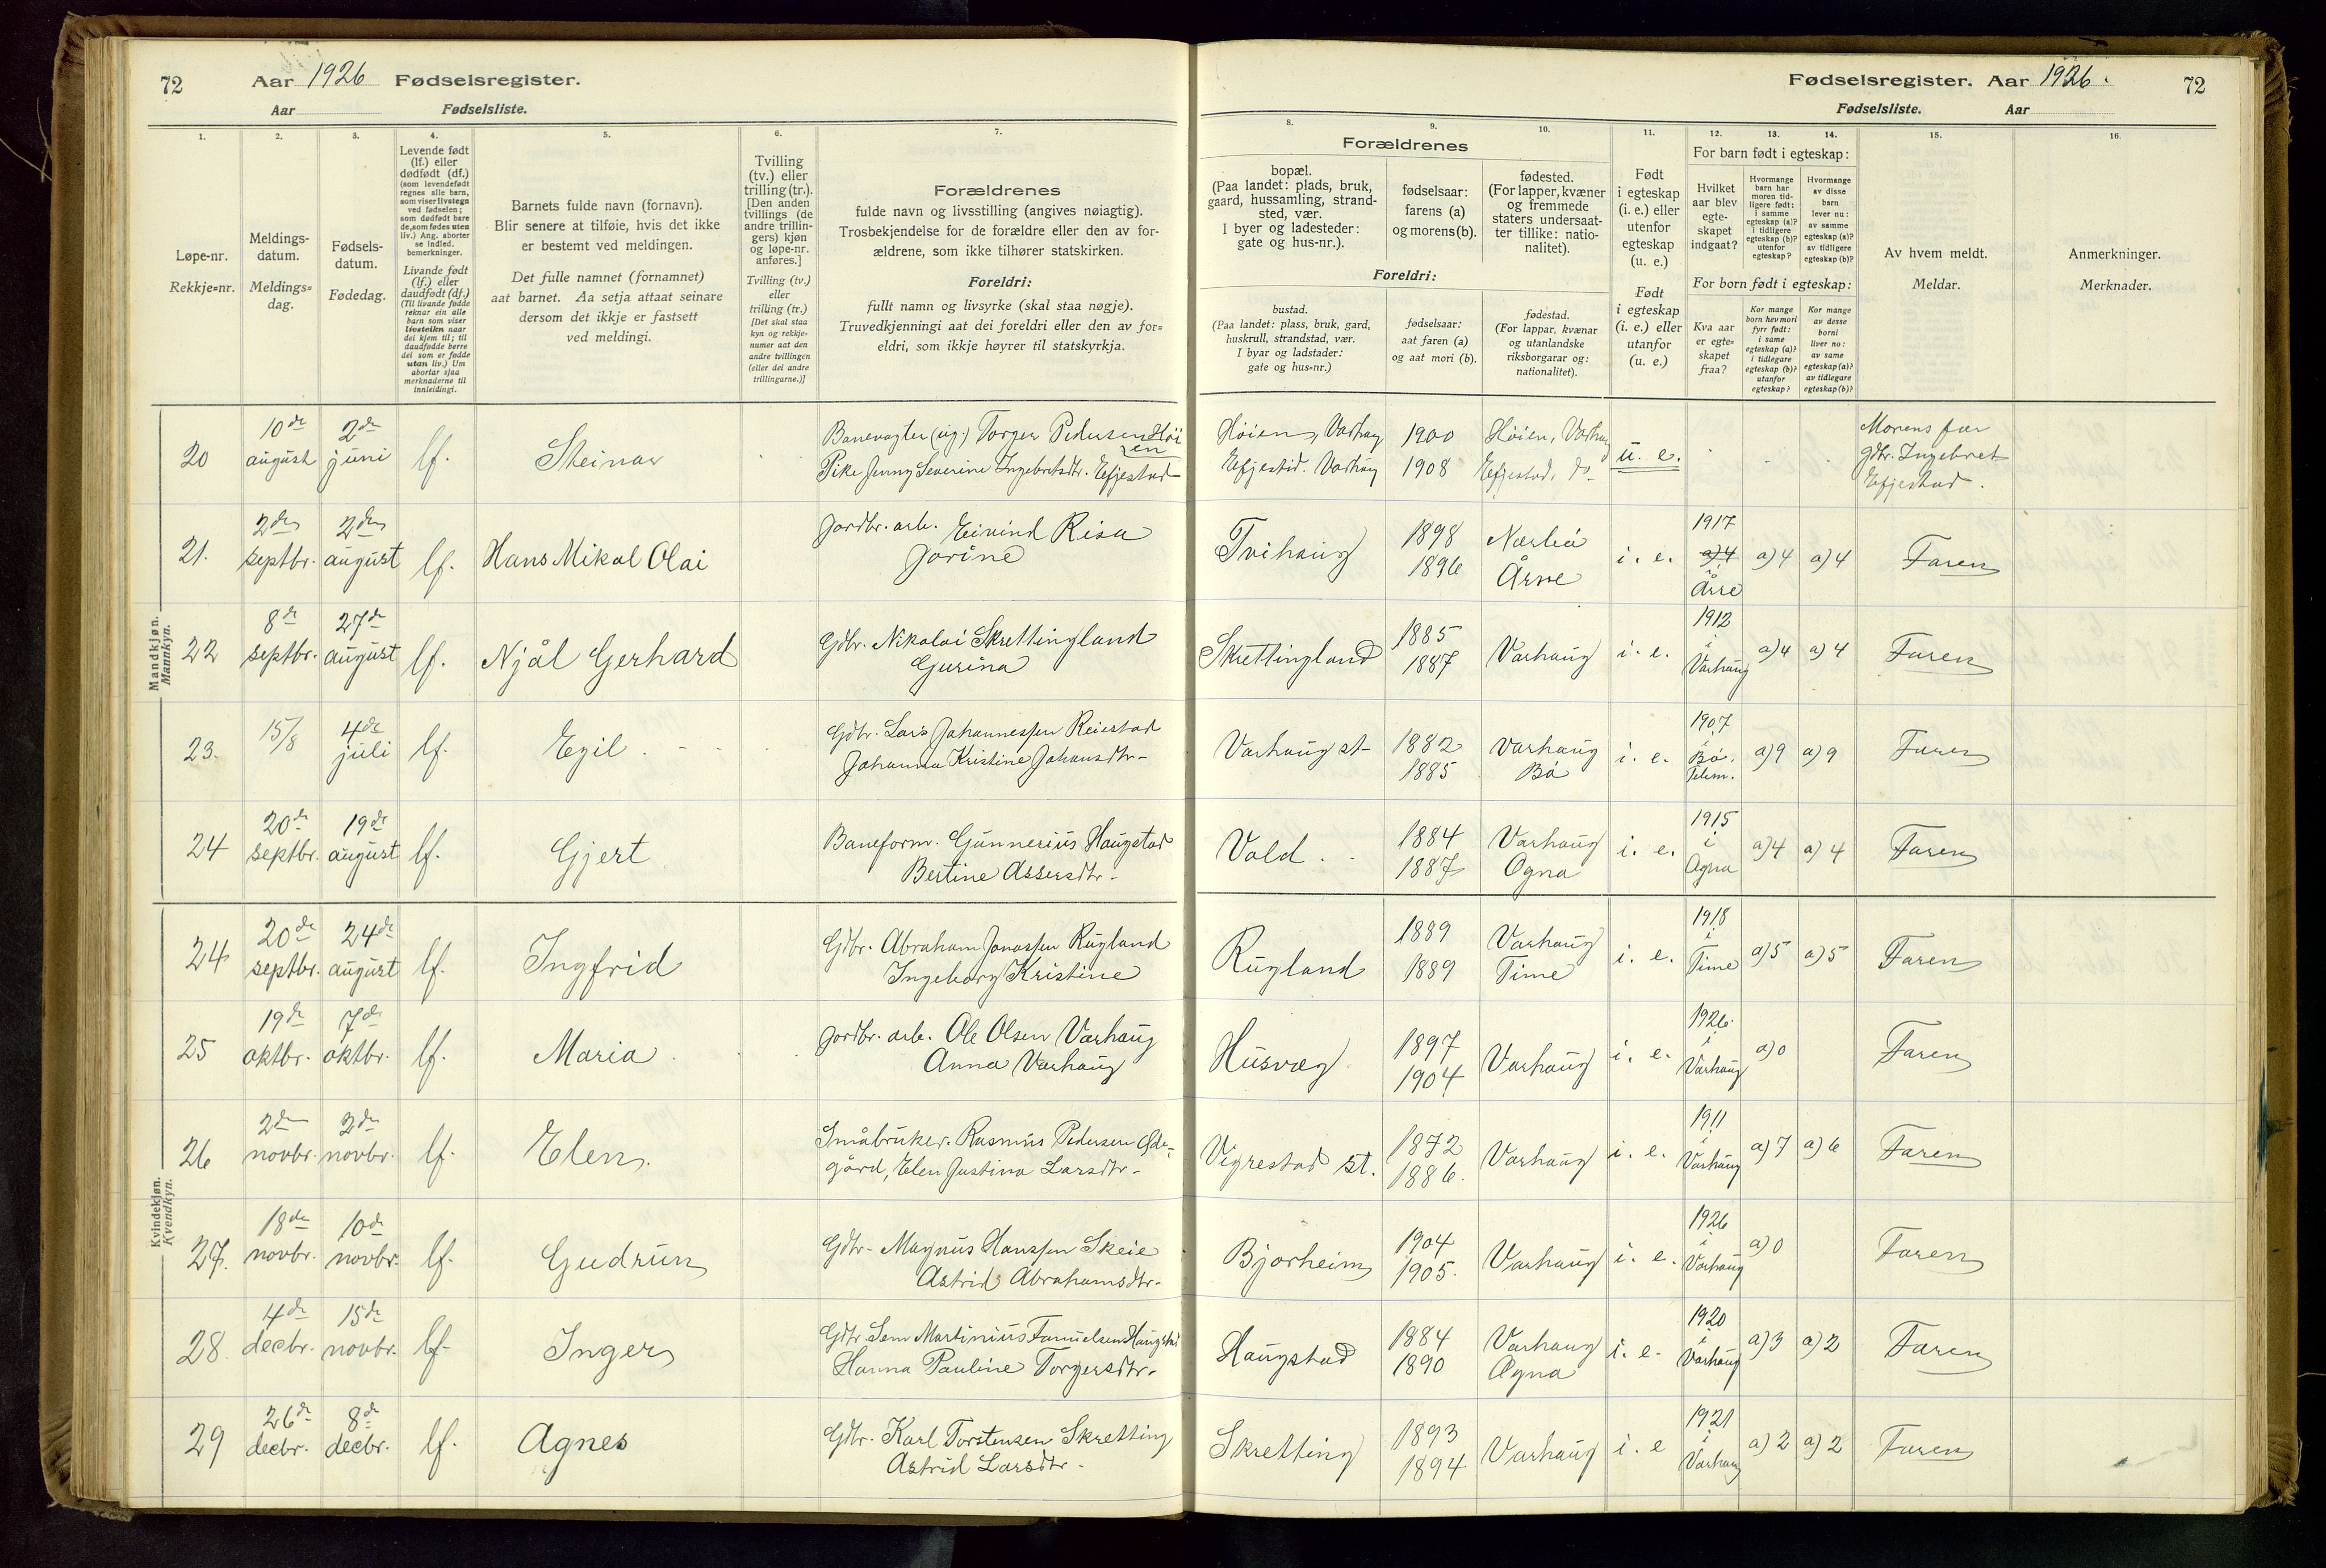 72 Aar 1926 Fødselsregister.
Aar Fødselsliste.
Fødselsregister. Aar 1926. 72
Fødselsliste. Aar
1. 2. 3. 4. 5. 6. 7.
Løpe-nr.
Rekkje=nr.
Meldings-
datum.
Meldings=
dag.
Fødsels-
datum.
Fødedag.
Levende født
(lf.) eller
dødfødt (df.)
(som levendefødt
regnes alle barn,
som viser livstegn
ved fødselen;
som dødfødt bare
de, som fødes uten
liv.) Ang. aborter
se indled.
bemerkninger.
Livande født
(lf.) eller
daudfødt (df.)
(Til livande fødde
reknar ein alle
barn som viser
livsteikn naar
dei kjem til; til
daudfødde berre
dei som er fødde
utan liv.) Um
abortar sjaa
merknaderne til
innleidingi.
Barnets fulde navn (fornavn).
Blir senere at tilføie, hvis det ikke
er bestemt ved meldingen.
Det fulle namnet (fornamnet)
aat barnet. Aa setja attaat seinare
dersom det ikkje er fastsett
ved meldingi.
Tvilling
(tv.) eller
trilling (tr.).
[Den anden
tvillings (de
andre trillin-
gers) kjøn
og løpe-nr.
anføres.]
Tvilling (tv.)
eller
trilling (tr.)
[Det skal staa
kyn og rekkje-
numer aat den
andre tvillingen
(eller dei andre
trillingarne.)]
Forældrenes
fulde navn og livsstilling (angives nøiagtig).
Trosbekjendelse for de forældre eller den av for-
ældrene, som ikke tilhører statskirken.
Foreldri:
fullt namn og livsyrke (skal staa nøgje).
Truvedkjenningi aat dei foreldri eller den av for=
eldri, som ikkje høyrer til statskyrkja.
8. 9. 10. 11. 12. 13. 14. 15. 16.
Forældrenes
bopæl.
(Paa landet: plads, bruk,
gaard, hussamling, strand-
sted, vær.
I byer og ladesteder:
gate og hus-nr.).
fødselsaar:
farens (a)
og morens (b).
fødested.
(For lapper, kvæner
og fremmede
staters undersaat-
ter tillike: natio-
nalitet).
Foreldri:
bustad.
(Paa landet: plass, bruk, gard,
huskrull, strandstad, vær.
I byar og ladstader:
gate og hus=nr.)
fødselsaar:
aat faren (a)
og aat mori (b).
fødestad.
(For lappar, kvænar
og utanlandske
riksborgarar og:
nationalitet).
Født
i egteskap
(i. e.) eller
utenfor
egteskap
(u. e.)
Født
i egteskap
(i. e.) eller
utanfor
(u. e.)
For barn født i egteskap:
Hvilket
aar blev
egte-
skapet
indgaat?
Hvormange
barn har
moren tid-
ligere født:
i samme
egteskap (a)?
i tidligere
egteskap (b)?
utenfor
egteskap?
Hvormange
av disse
barn
lever nu:
av samme
egteskap (a)?
av tidligere
egteskap (b)?
For born født i egteskap:
Kva aar
er egte=
skapet
fraa?
Kor mange
born hev mori
fyrr født:
i same
egteskap (a)?
i tidlegare
egteskap (b)?
utanfor
egteskap?
Kor mange
av desse
borni
liver no:
av same
egteskap (a)?
av tidlegare
egteskap (b)?
Av hvem meldt.
Meldar.
Anmerkninger.
Merknader.
Mandkjøn.
Mannkyn.
20 10de august 2de juni lf. Steinar
Banevogter (ug.) Torger Pedersen Höi
en
Pike Jenny Severine Ingebretsdtr. Efjestad
Höien, Varhaug 1900 Höien, Varhaug
Efjestad. Varhaug 1908 Efjestad, do. u. e.
Morens far
gdbr. Ingebret
Efjestad.
21. 2den septbr. 2den august lf. Hans Mikal Olai
Jordbr. arb. Eivind Risa
Jorine
Tvihaug 1898 Nærbö
1896 Årre i. e. 1917 a)4 i Årre a)4 a)4 Faren
22 8de septbr. 27de august lf. Njål Gerhard
Gdbr. Nikolai Skrettingland
Gurina
Skrettingland 1885 1887 Varhaug i. e. 1912 i Varhaug a)4 a)4 Faren
23. 15/8 4de juli lf. Egil
Gdbr. Lars Johannessen Reiestad
Johanna Kristine Johansdtr.
Varhaug st. 1882 Varhaug
1885 Bö i. e. 1907 i Bö. Telem. a)9 a)9 Faren
24 20de septbr. 19de august lf. Gjert
Baneform. Gunnerius Haugstad
Bertine Assersdtr.
Vold 1884 Varhaug
1887 Ogna i. e. 1915 i Ogna a)4 a)4 Faren
Kvindekjøn.
Kvendkyn.
24 20de septbr. 24de august lf. Ingfrid
Gdbr. Abraham Jonassen Rugland
Ingeborg Kristine
Rugland 1889 Varhaug
1889 Time i. e. 1918 i Time a)5 a)5 Faren
25 19de oktbr. 7de oktbr. lf. Maria
Jordbr. arb. Ole Olsen Varhaug
Anna Varhaug
Husvæg 1897 1904 Varhaug i. e. 1926 i Varhaug a)0 Faren
26 2den novbr. 2den novbr. lf. Elen.
Småbruker. Rasmus Pedersen Öde-
gård, Elen Justina Larsdtr.
Vigrestad st. 1872 1886. Varhaug i. e. 1911 i Varhaug a)7 a)6 Faren
27. 18de novbr. 10de novbr. lf. Gudrun
Gdbr. Magnus Hanssen Skeie
Astrid Abrahamsdtr.
Bjorheim 1904 1905. Varhaug i. e. 1926 i Varhaug a)0 Faren
28. 4de decbr. 15de novbr. lf. Inger
Gdbr. Sem Martinius Samuelsen Haugstad
Hanna Pauline Torgersdtr.
Haugstad 1884 Varhaug
1890 Ogna i. e. 1920 i Varhaug a)3 a)2 Faren
29 26de decbr. 8de decbr. lf. Agnes
Gdbr. Karl Torstensen Skretting
Astrid Larsdtr.
Skretting 1893 1894 Varhaug i. e 1921 i Varhaug a)2 a)2 Faren